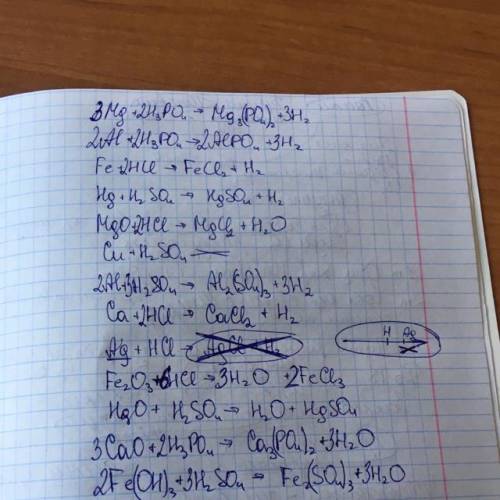 3Mg + 2H₃PO₄ → Mg₃(PO₄)₂ + 3H₂
2Al + 2H₃PO₄ → 2AlPO₄ + 3H₂
Fe + 2HCl → FeCl₂ + H₂
Hg + H₂SO₄ → HgSO₄ + H₂
MgO + 2HCl → MgCl₂ + H₂O
Cu + H₂SO₄
2Al + 3H₂SO₄ → Al₂(SO₄)₃ + 3H₂
Ca + 2HCl → CaCl₂ + H₂
Ag + HCl → AgCl + H₂ H Ag
Fe₂O₃ + 6HCl → 3H₂O 2FeCl₃
HgO + H₂SO₄ → H₂O + HgSO₄
3CaO + 2H₃PO₄ → Ca₃(PO₄)₂ + 3H₂O
2Fe(OH)₃ + 3H₂SO₄ = Fe₂(SO₄)₃ + 3H₂O